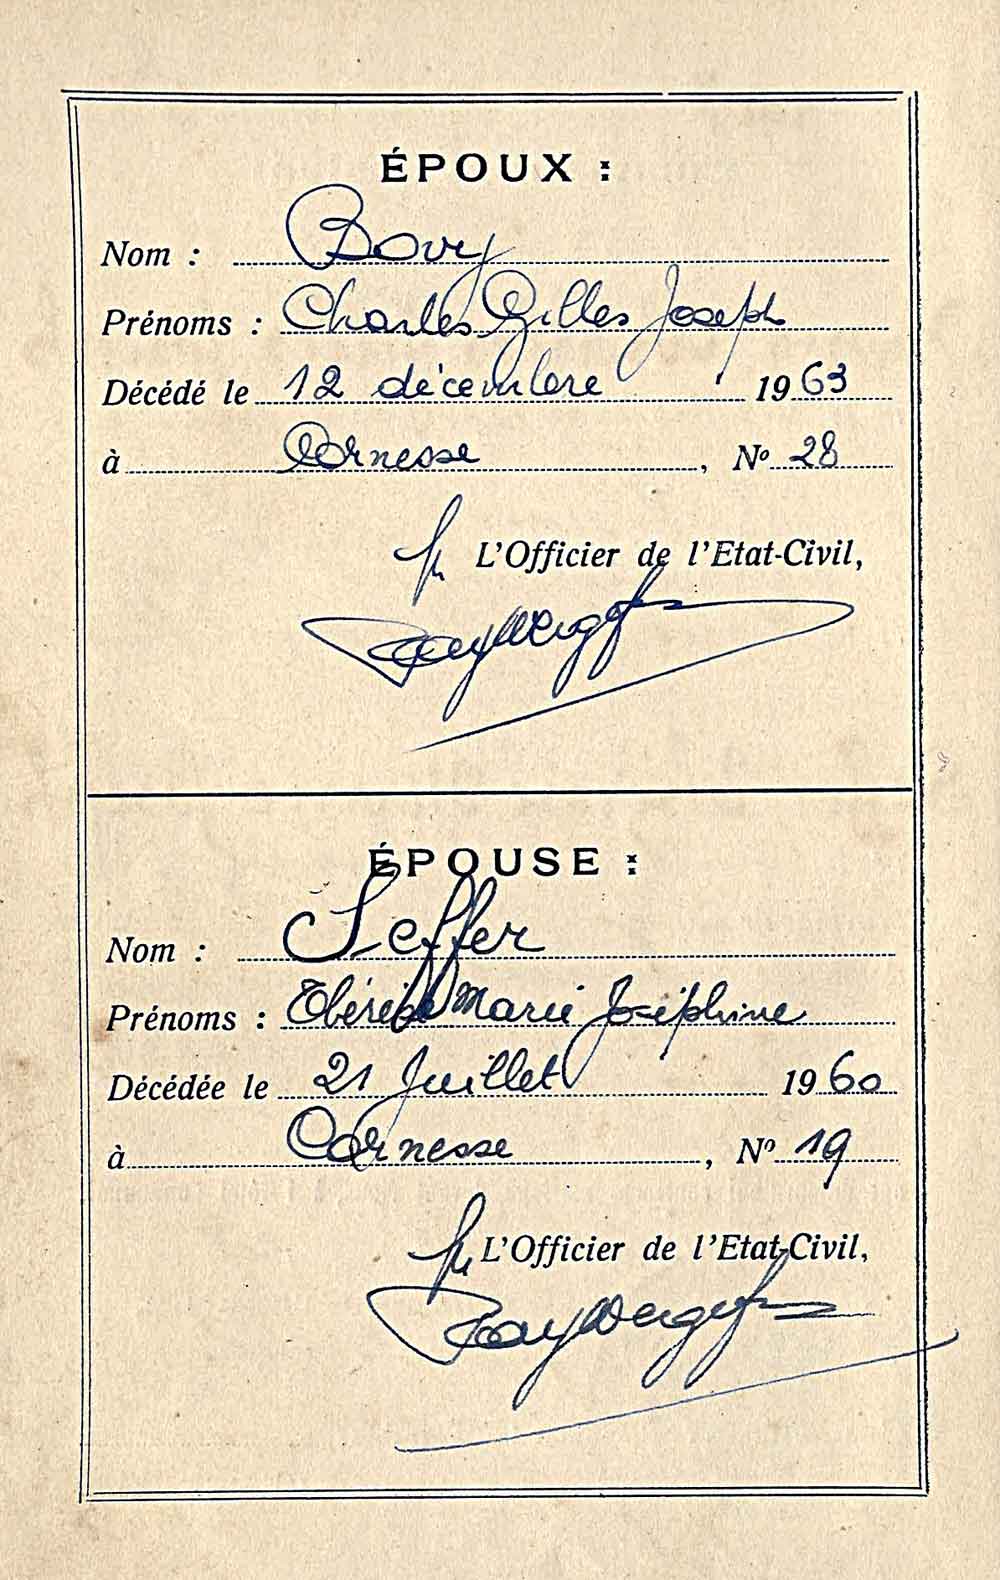 ÉPOUX :
Nom : Bovy
Prénoms : Charles Gilles Joseph
Décédé le 12 décembre 1963
à Cornesse, Nº 28
L'Officier de l'Etat-Civil,
ÉPOUSE :
Nom : Seffer
Prénoms : Thérèse Marie Joséphine
Décédée le 21 Juillet 1960
à Cornesse, Nº 19
L'Officier de l'Etat-Civil,